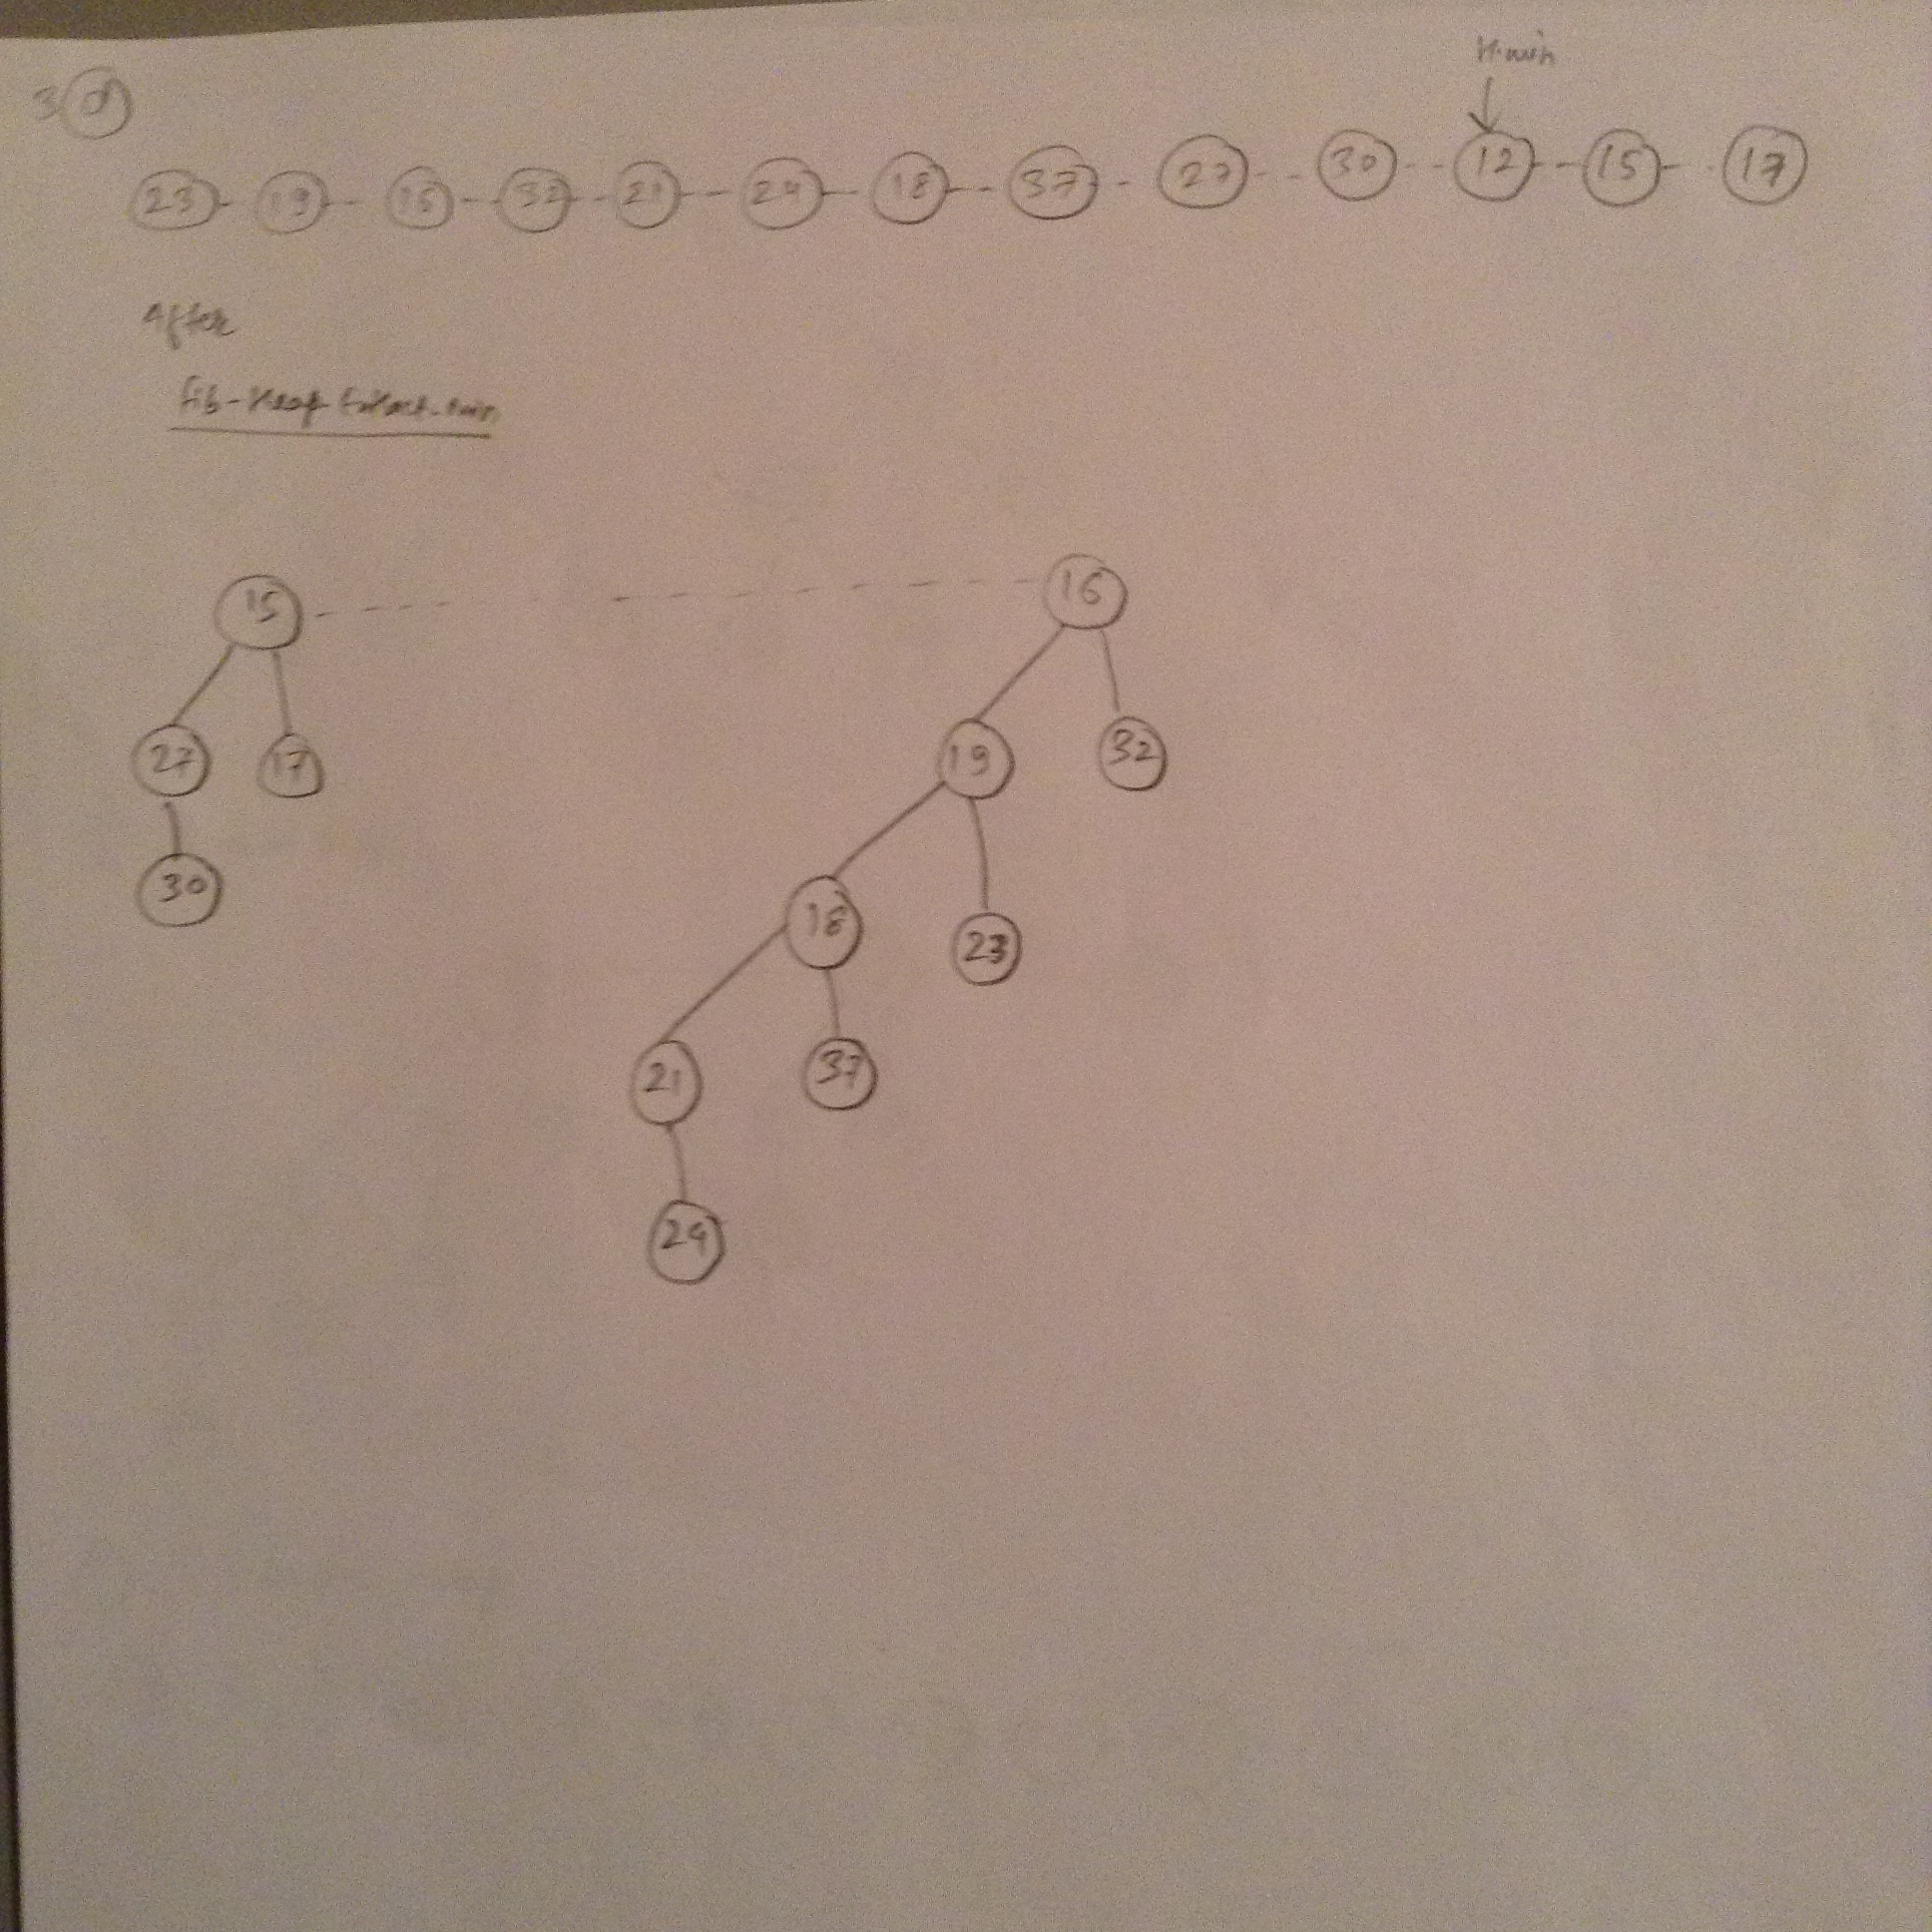 H.min
3 d
23 19 16 32 21 24 18 37 27 30 12 15 17
After
Fib-Heap Extract-min
15 16
27 17 19 32
30 18 23
21 37
24